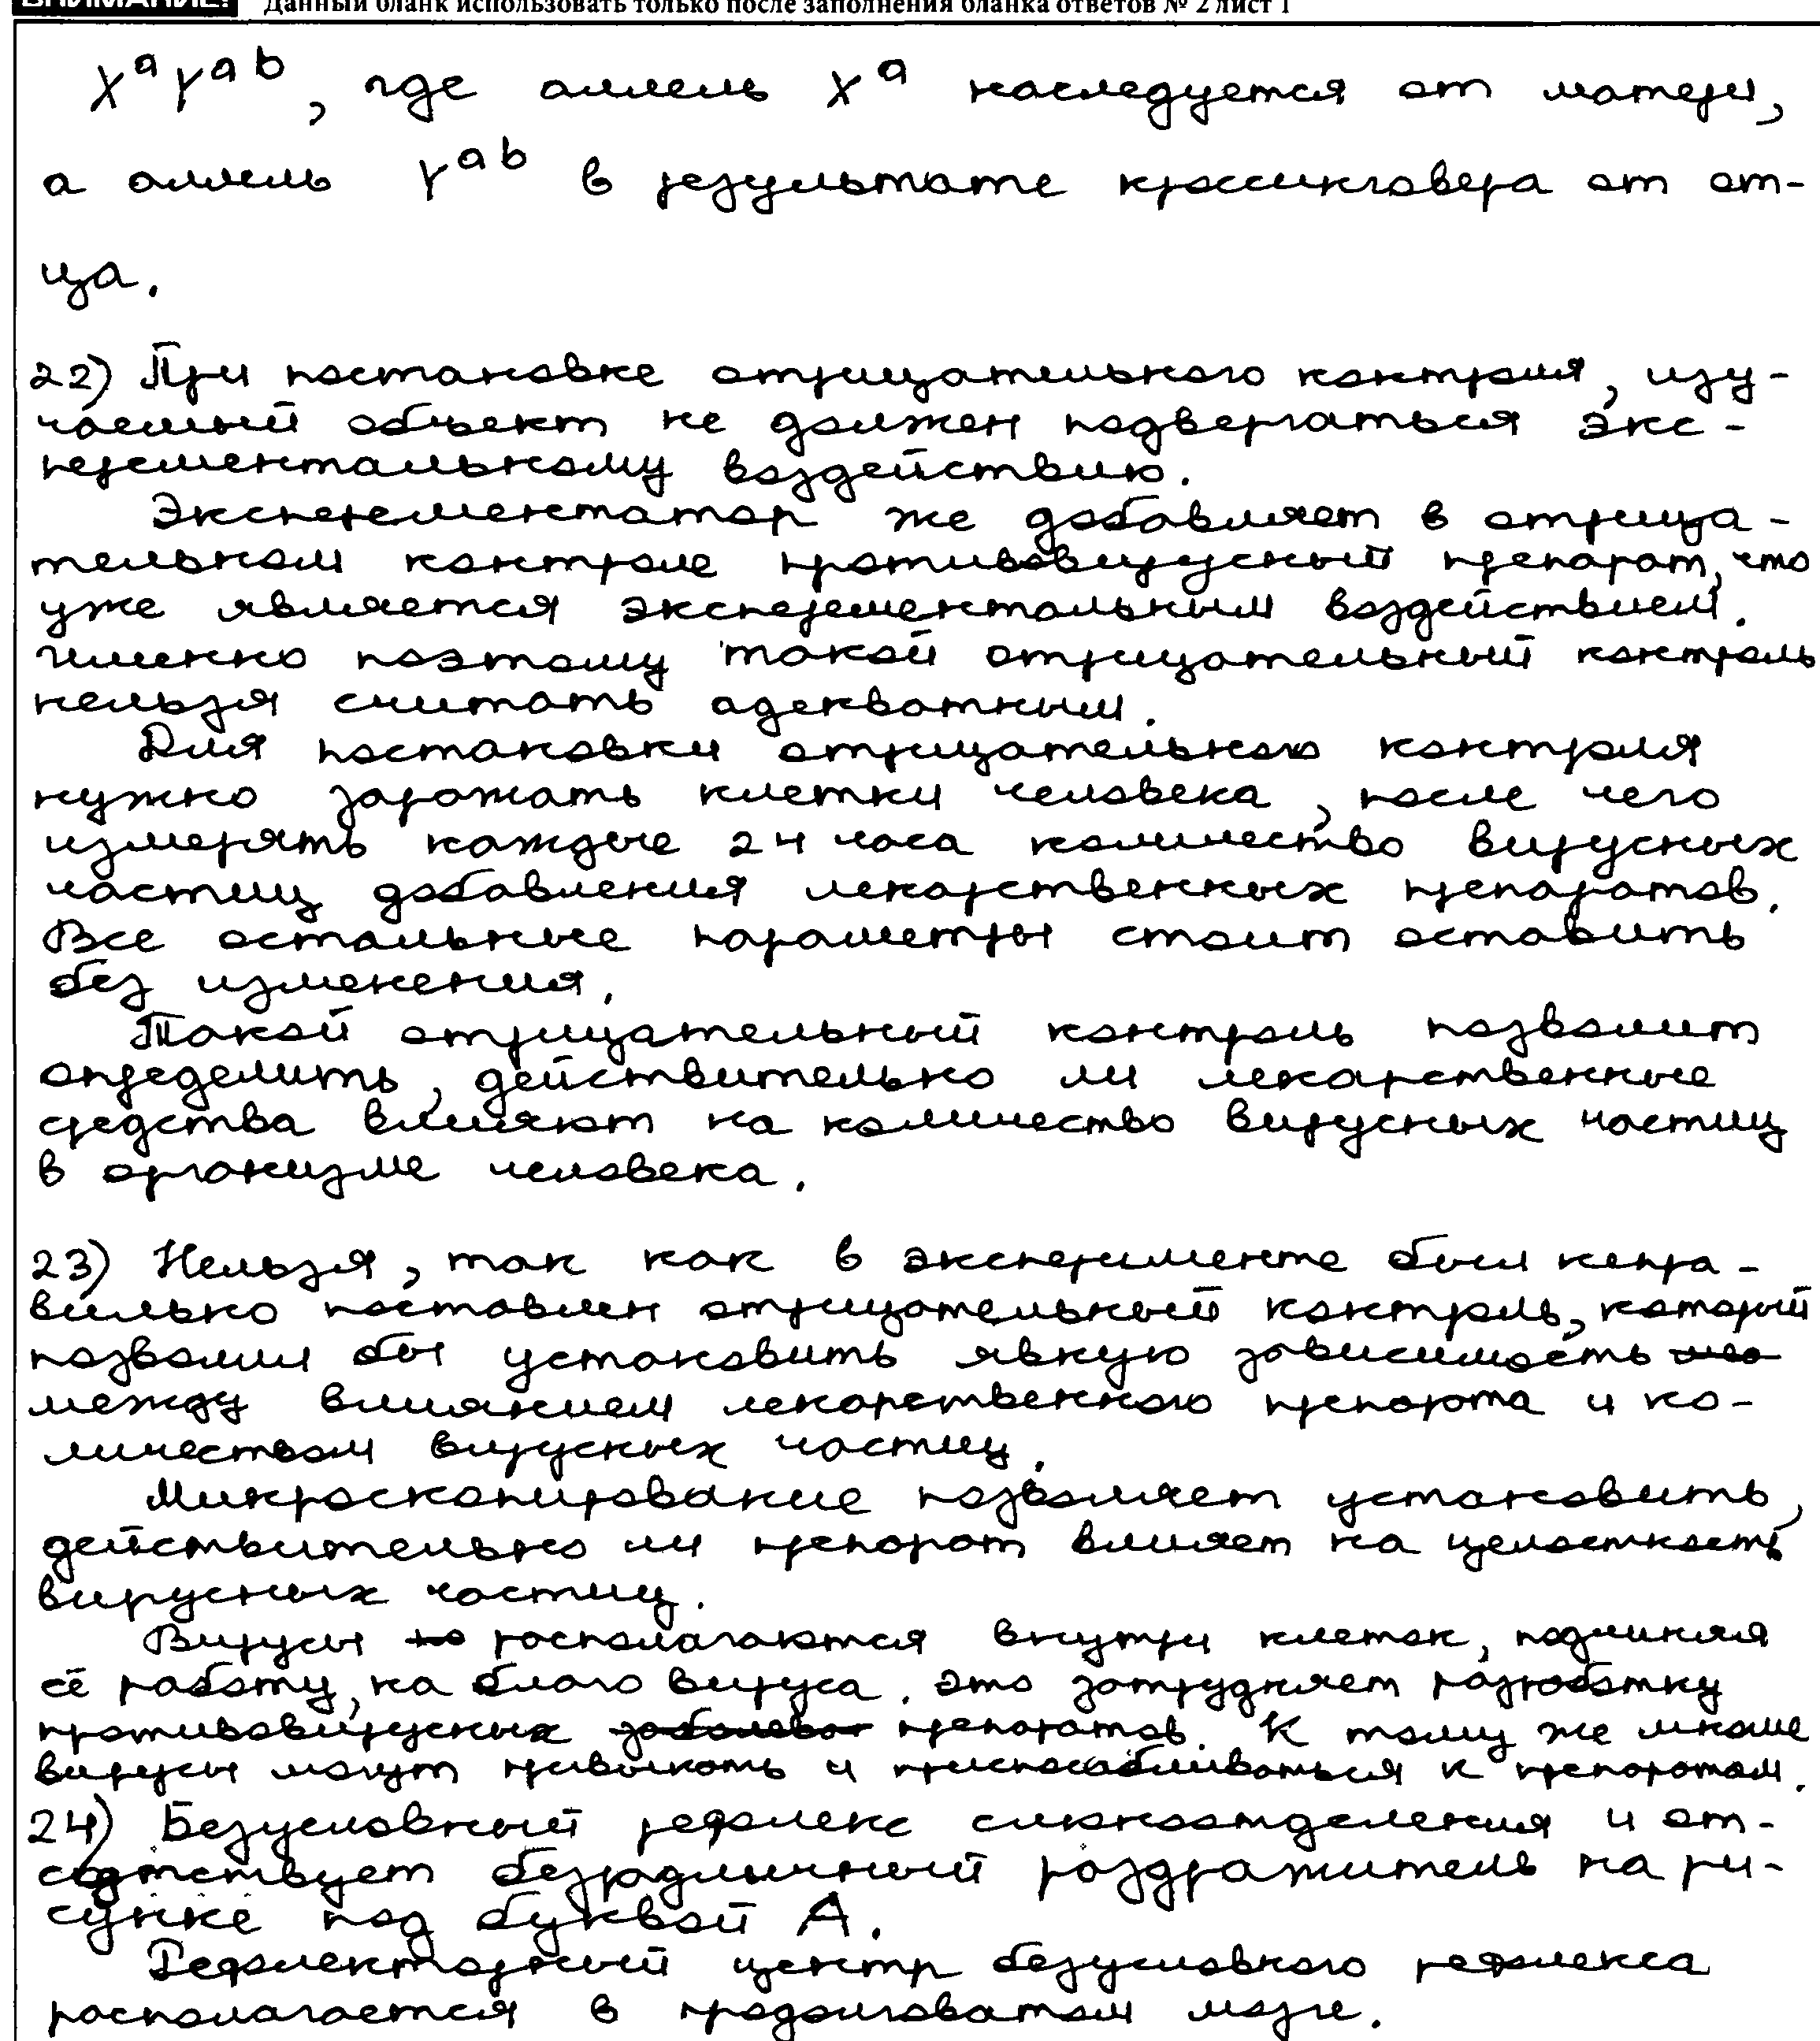 ВНИМАНИЕ! Данный бланк использовать только после заполнения бланка ответов № 2 лист 1
XᵃYᵃᵇ, где аллель Xᵃ наследуется от матери,
а аллель Yᵃᵇ в результате кроссинговера от от-
ца.
22) При постановке отрицательного контроля, изу-
чаемый объект не должен подвергаться экс-
перементальному воздействию.
Эксперементатор же добавляет в отрица-
тельном контроле противовирусный препарат, что
уже является эксперементальным воздействием.
Именно поэтому такой отрицательный контроль
нельзя считать адекватным.
Для постановки отрицательного контроля
нужно заражать клетки человека, после чего
измерять каждые 24 часа количество вирусных
частиц добавления лекарственных препаратов.
Все остальные параметры стоит оставить
без изменения.
Такой отрицательный контроль позволит
определить, действительно ли лекарственные
средства влияют на количество вирусных частиц
в организме человека.
23) Нельзя, так как в эксперименте был непра-
вильно поставлен отрицательный контроль, который
позволил бы установить явную зависимость
между влиянием лекарственного препарта и ко-
личеством вирусных частиц.
Микроскопирование позволяет установить,
действительно ли препарат влияет на целостность
вирусных частиц.
Вирусы располагаются внутри клеток, подчиняя
её работу, на благо вируса. Это затрудняет разработку
противовирусных препаратов. К тому же многие
вирусы могут привыкать и приспосабливаться к препаратам.
24) Безусловный рефлекс слюноотделения и от-
сутствует безразличный раздражитель на ри-
сунке под буквой А.
Рефлекторный центр безусловного рефлекса
располагается в продолговатом мозге.